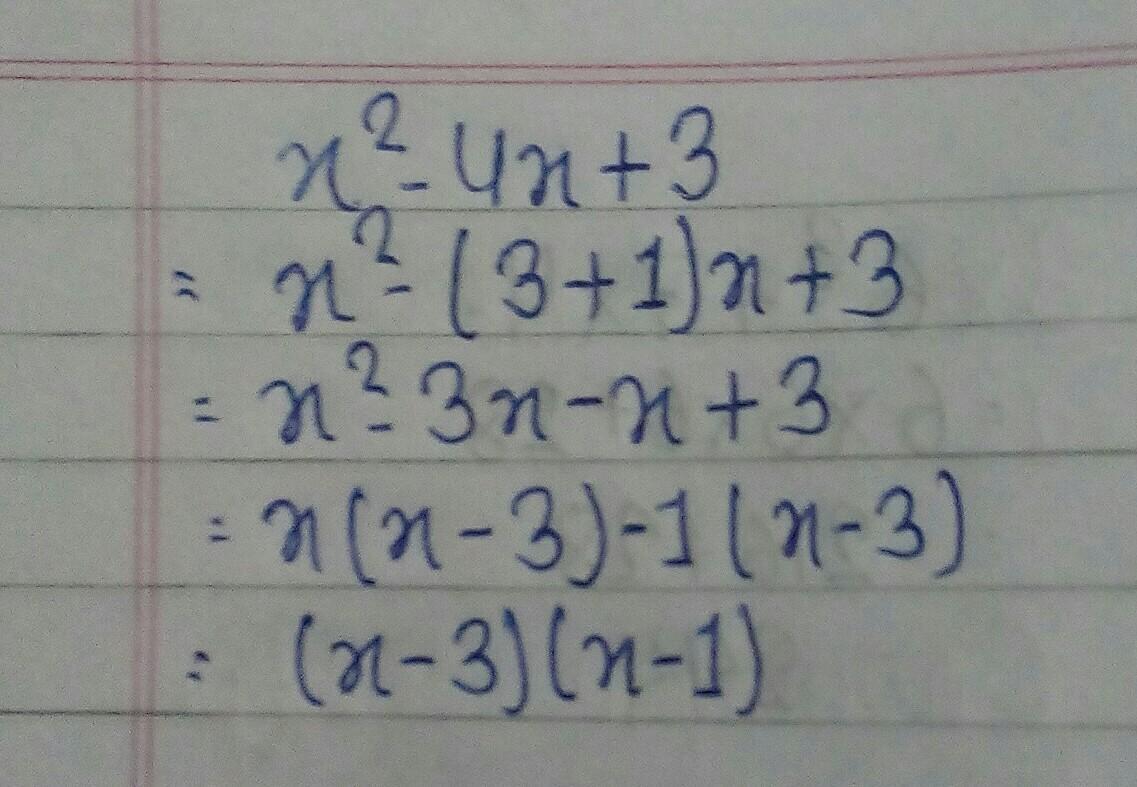 x² - 4x + 3
= x² - (3 + 1)x + 3
= x² - 3x - x + 3
= x(x - 3) - 1(x - 3)
= (x - 3)(x - 1)